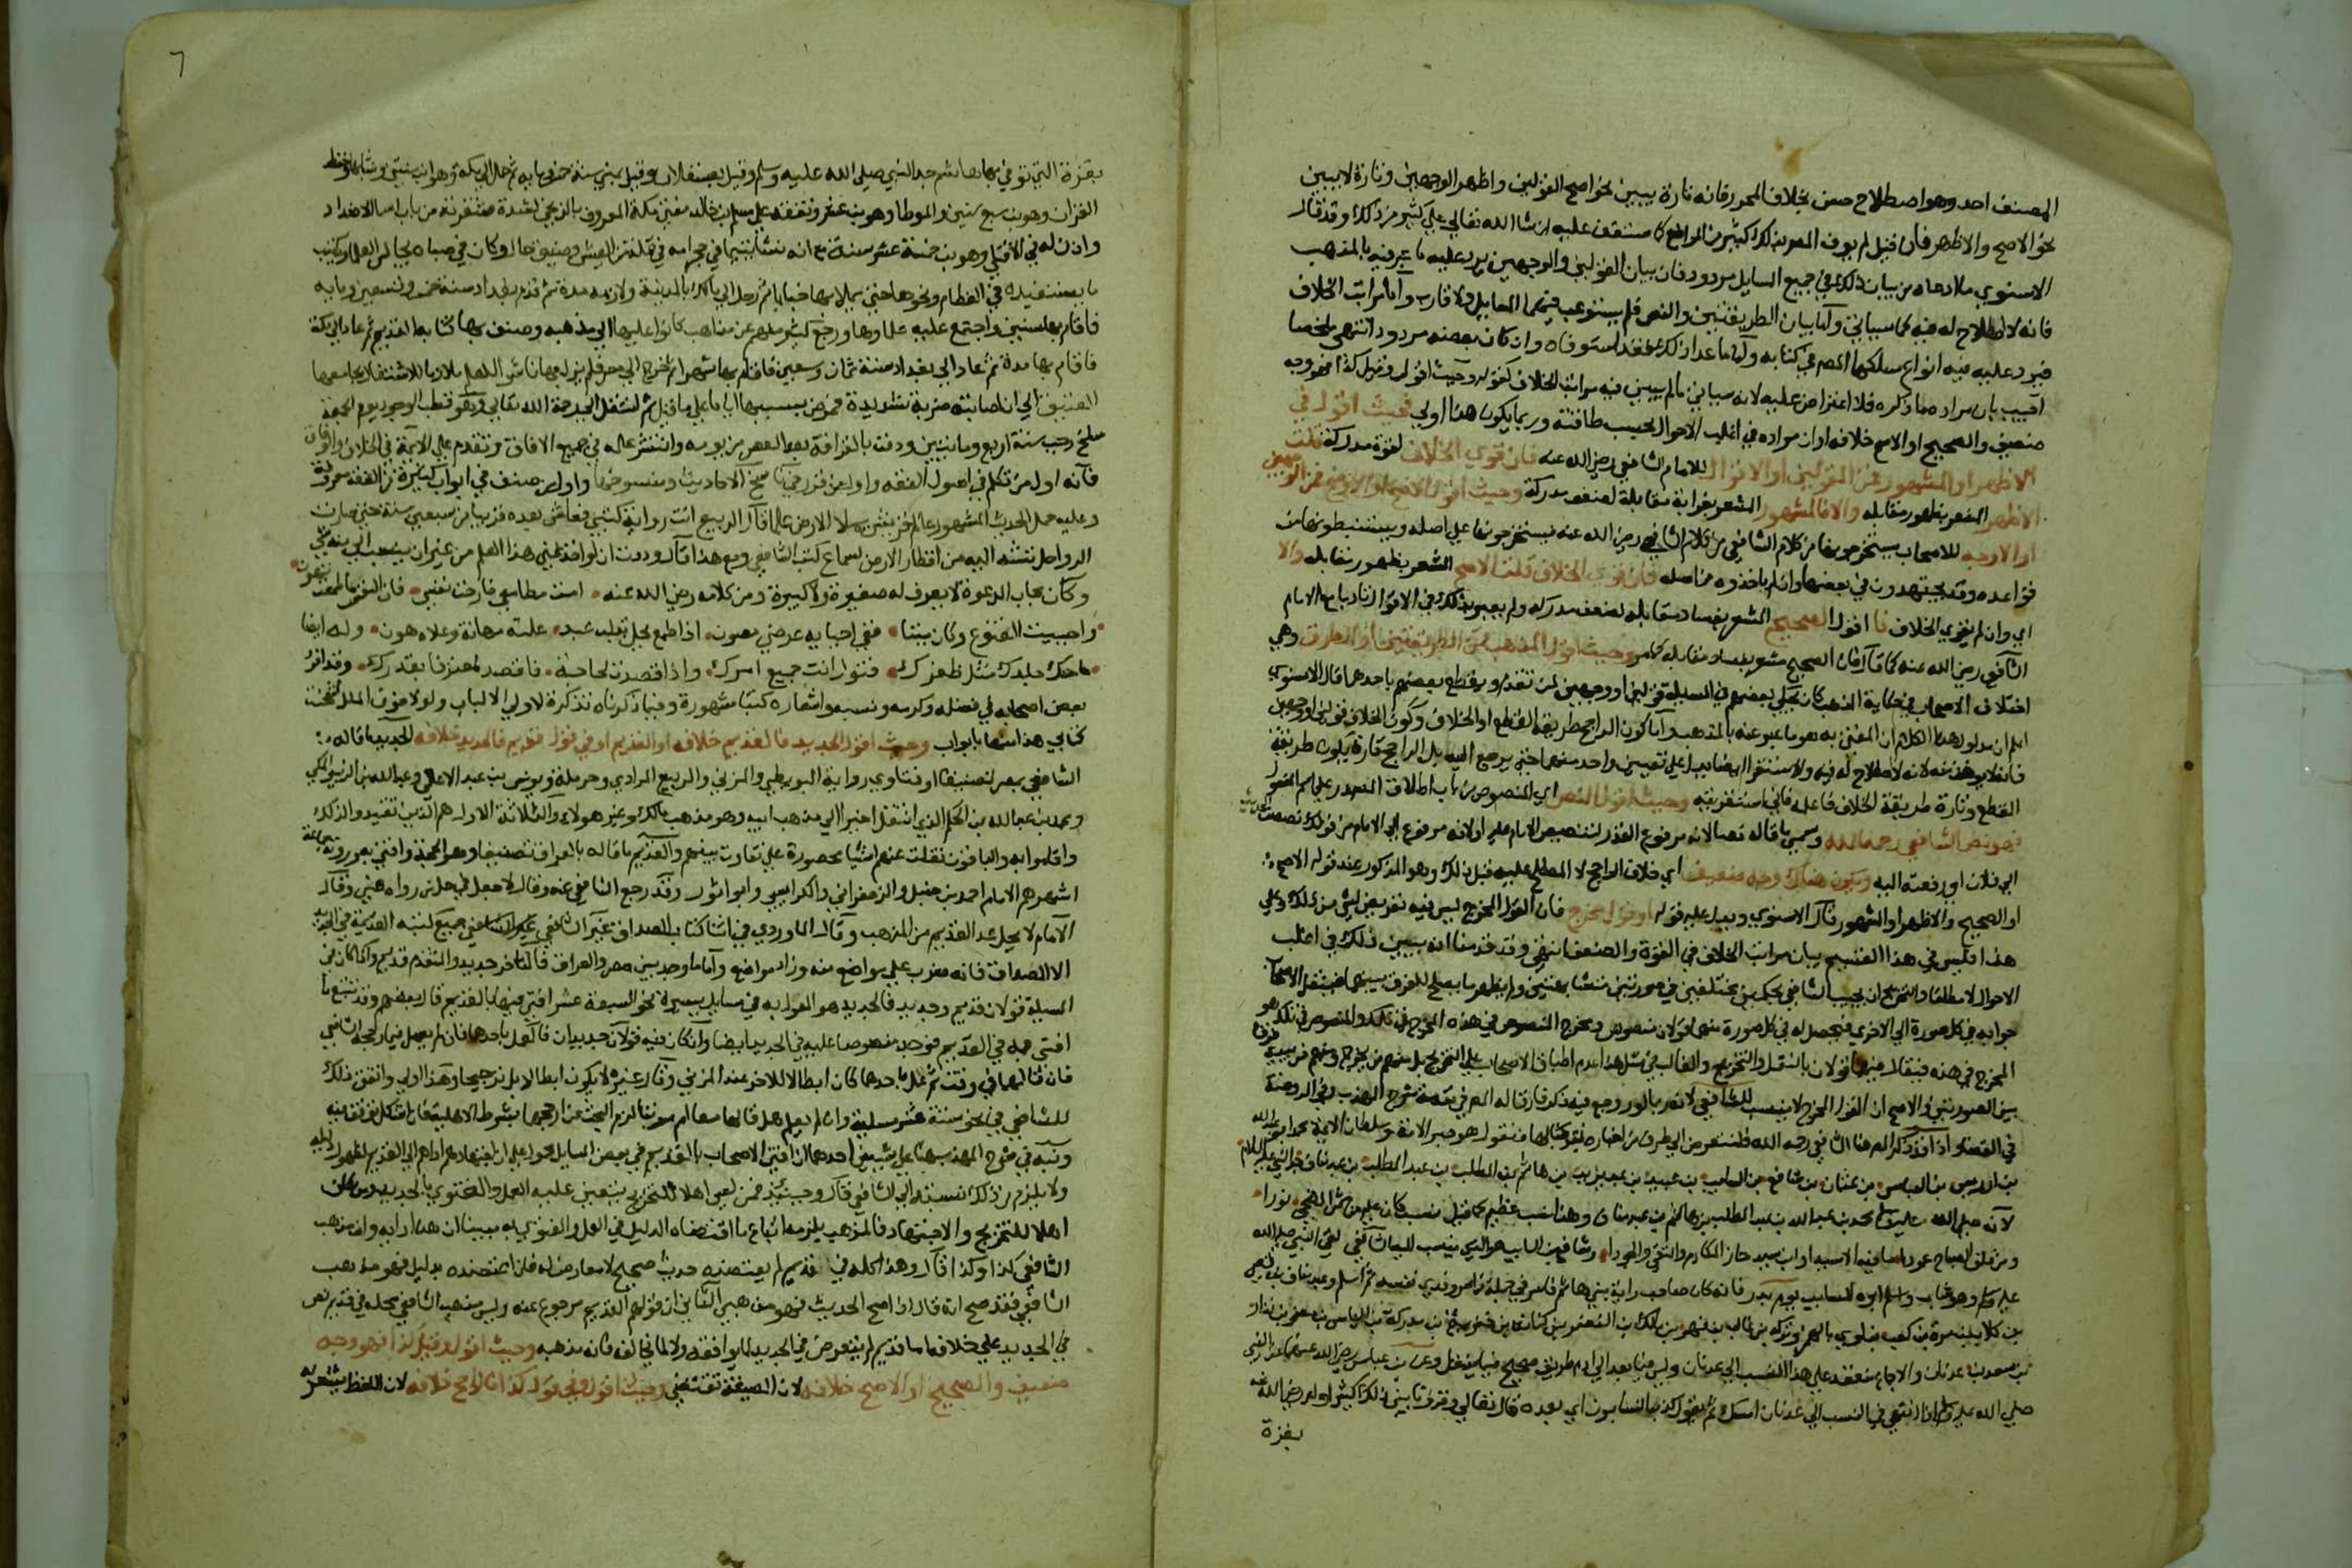 المصنف احد وهو اصطلاح حسن بخلاف المحرر فانه تارة يبين نحو اصح القولين واظهر الوجهين وتارة لا يبين
نحو الاصح والاظهر فان قيل لم يوف المصنف بذلك في كثير من المواضع كما ستقف عليه ان شا الله تعالى على كثير من ذلك وقد قال
الاسنوي ما ادعاه من بيان ذلك في جميع المسايل مردود فان بيان القولين والوجهين يرد عليه ما عبر فيه بالمذهب
فانه لا اصطلاح له فيه كما سياتي واما بيان الطريقين والنص فلم يستوعب فيهما المسايل ولا قارب واما مراتب الخلاف
فيرد عليه فيه انواع سلكها المصنف في كتابه واما ما عدا ذلك فقد استوفاه وان كان بعضه مردودا انتهى ملخصا
اجيب بان مراده ما ذكره فلا اعتراض عليه لانه سياتي ما لم يبين فيه مراتب الخلاف كقوله وحيث اقول وقيل كذا فهو وجه
ضعيف والصحيح او الاصح خلافه او ان مراده في اغلب الاحوال بحسب طاقته وربما يكون هذا اولى فحيث اقول في
الاظهر او المشهور فمن القولين او الاقوال للامام الشافعي رضي الله عنه فان قوي الخلاف لقوة مدركه قلت
الاظهر المشعر بظهور مقابله والا فالمشهور المشعر بغرابة مقابله لضعف مدركه وحيث اقول الاصح او الصحيح فمن الوجهين
او الاوجه للاصحاب يستخرجونها من كلام الشافعي رضي الله عنه فيستخرجونها على اصله ويستنبطونها من
قواعده وقد يجتهدون في بعضها وان لم ياخذوه من اصله فان قوي الخلاف قلت الاصح المشعر بظهور مقابله والا
اي وان لم يقوي الخلاف فا اقول الصحيح المشعر بفساد مقابله لضعف مدركه ولم يعبر بذلك في الاقوال تادبا مع الامام
الشافعي رضي الله عنه كما قال فان الصحيح مشعر بفساد مقابله كما مر وحيث اقول المذهب فمن الطريقين او الطرق وهي
اختلاف الاصحاب في حكاية المذهب كان يحكي بعضهم في المسيلة قولين او وجهين لمن تقدم ويقطع بعضهم باحدهما قال الاسنوي
اعلم ان مدلول هذا الكلام ان المفتى به هو ما عبر عنه بالمذهب واما كون الراجح طريقة القطع او الخلاف وكون الخلاف قولين او وجهين
القطع وتارة طريقة الخلاف فاعلمه فاني استقريته وحيث اقول النص اي المنصوص من باب اطلاق المصدر على اسم المفعول
فهو نص الشافعي رحمه الله وسمي ما قاله نصا لانه مرفوع القدر لتنصيص الامام عليه او لانه مرفوع الى الامام من قولك نصصت الحديث
الى فلان اذا رفعته اليه ويكون هناك وجه ضعيف اي خلاف الراجح لا المطلع عليه قبل ذلك وهو المذكور عند قوله الاصح
او الصحيح والاظهر او المشهور قال الاسنوي ويدل عليه قوله او قول مخرج فان القول المخرج ليس فيه تعرض لشي من ذلك وعلى
هذا فليس في هذا القسم بيان مراتب الخلاف في القوة والضعف انتهى وقد قدمنا انه يبين ذلك في اغلب
الاحوال لا مطلقا والتخريج ان يجيب الشافعي بحكمين مختلفين في صورتين متشابهتين ولم يظهر ما يصلح للفرق بينهما فينقل الاصحاب
جوابه في كل صورة الى الاخرى فيحصل له في كل صورة منهما قولان منصوص ومخرج المنصوص في هذه المخرج في تلك والمنصوص في تلك هو
المخرج في هذه فيقال فيهما قولان بالنقل والتخريج والغالب في مثل هذا عدم اطباق الاصحاب على التخريج بل منهم من يخرج ومنهم من يبدي فرقا
بين الصورتين والاصح ان القول المخرج لا ينسب للشافعي لانه ربما لو روجع فيه ذكر فارقا قاله المصنف في مقدمة شرح المهذب وفي الروضة
في القضا واذ قد ذكر المصنف هنا الشافعي رحمه الله فلنتعرض الى طرف من اخباره تبركا فنقول هو حبر الامة وسلطان الايمة محمد ابو عبد الله
بن ادريس بن العباس بن عثمان بن شافع بن السايب بن عبيد بن عبد يزيد بن هاشم بن المطلب بن عبد مناف جد النبي عليه السلام
لانه صلى الله عليه وسلم محمد بن عبد الله بن عبد المطلب بن هاشم بن عبد مناف وهذا نسب عظيم كما قيل نسب كان عليه من شمس الضحى نورا
ومن فلق الصباح عمودا ما فيه الا سيد ابن سيد حاز المكارم والتقى والجودا وشافع بن السايب هو الذي ينسب اليه الشافعي لقي النبي صلى الله
عليه وسلم وهو شاب واسلم ابوه السايب يوم بدر فانه كان صاحب راية بني هاشم فاسر في جملة من اسر وفدى نفسه ثم اسلم وعبد مناف بن قصي
بن كلاب بن مرة بن كعب بن لوي بالهمز وتركه بن غالب بن فهر بن مالك بن النضر بن كنانة بن خزيمة بن مدركة بن الياس بن مضر بن نزار
بن معد بن عدنان والاجماع منعقد على هذا النسب الى عدنان وليس فيما بعده الى ادم طريق صحيح فيما ينقل وعن بن عباس رضي الله عنهما عن النبي
صلى الله عليه وسلم كان اذا انتهى في النسب الى عدنان امسك ثم يقول كذب النسابون اي بعده قال تعالى وقرونا بين ذلك كثيرا ولد رضي الله عنه
بغزة
٦
بغزة التي توفي بها هاشم جد النبي صلى الله عليه وسلم وقيل بعسقلان وقيل بمنى سنة خمسين ومايه ثم حمل الى مكة وهو ابن سنتين ونشا بها وحفظ
القران وهو بن سبع سنين والموطا وهو بن عشر وتفقه على مسلم بن خالد مفتي مكة المعروف بالزنجي لشدة شقرته من باب اسما الاضداد
واذن له في الافتا وهو بن خمسة عشر سنة مع انه نشا يتيما في حجر امه في قلة من العيش وضيق حال وكان في صباه يجالس العلما ويكتب
ما يستفيده في العظام ونحوها حتى ملا منها خبايا ثم رحل الى مالك بالمدينة ولازمه مدة ثم قدم بغداد سنة خمس وتسعين ومايه
فاقام بها سنتين واجتمع عليه علماوها ورجع كثير منهم عن مذاهب كانوا عليها الى مذهبه وصنف بها كتابه القديم ثم عاد الى مكة
فاقام بها مدة ثم عاد الى بغداد سنة ثمان وتسعين فاقام بها شهرا ثم خرج الى مصر فلم يزل بها ناشرا للعلم ملازما للاشتغال بجامعها
العتيق الى ان اصابته ضربة شديدة فمرض بسببها اياما على ما قيل ثم انتقل الى رحمة الله تعالى وهو قطب الوجود يوم الجمعة
سلخ رجب سنة اربع وماتين ودفن بالقرافة بعد العصر من يومه وانتشر علمه في جميع الافاق وتقدم على الايمة في الخلاف والوفاق
فانه اول من تكلم في اصول الفقه واول من قرر ناسخ الاحاديث ومنسوخها واول من صنف في ابواب كثيرة من الفقه معروفة
وعليه حمل الحديث المشهور عالم قريش يملا الارض علما قال الربيع انت رواية كتبي فعاش بعده قريبا من سبعين سنة حتى صارت
الرواحل تشد اليه من اقطار الارض لسماع كتب الشافعي ومع هذا قال وددت ان لو اخذ عني هذا العلم من غير ان ينسب الى منه شي
وكان مجاب الدعوة لا يعرف له صغيرة ولا كبيرة ومن كلامه رضي الله عنه امت مطامعي فارحت نفسي فان النفس ما طمعت تهون
واحييت القنوع وكان ميتا ففي احيايه عرضي مصون اذا طمع يحل بقلب عبد علته مهانة وعلاه هون وله ايضا
ما حك جلدك مثل ظفرك فتول انت جميع امرك واذا قصدت لحاجة فاقصد لمعترف بقدرك وقد افرد
بعض اصحابه في فضله وكرمه ونسبه واشعاره كتبا مشهورة وفيما ذكرناه تذكرة لاولي الالباب ولولا خوف الملل لشحنت
كتابي هذا منها بابواب وحيث اقول الجديد فالقديم خلافه او القديم او في قول قديم فالجديد خلافه الجديد ما قاله
الشافعي بمصر تصنيفا او فتاوى رواية البويطي والمزني والربيع المرادي وحرملة ويونس بن عبد الاعلى وعبد الله بن الزبير المكي
ومحمد بن عبد الله بن الحكم الذي انتقل اخيرا الى مذهب ابيه وهو مذهب مالك وغير هولاء والثلاثة الاول هم الذين تقيدوا لذلك
وقاموا به والباقون نقلت عنهم اشيا محصورة على تفاوت بينهم والقديم ما قاله بالعراق تصنيفا وهو الحجة وافتى به ورواته جماعة
اشهرهم الامام احمد بن حنبل والزعفراني والكرابيسي وابو ثور وقد رجع الشافعي عنه وقال لا اجعل في حل من رواه عني وقال
الامام لا يحل عد القديم من المذهب وقال الماوردي في اثنا كتاب الصداق غير الشافعي جميع كتبه القديمة في الجديد
الا الصداق فانه ضرب على مواضع منه وزاد مواضع واما ما وجد بين مصر والعراق فالمتاخر جديد والمتقدم قديم واذا كان في
المسيلة قولان قديم وجديد فالجديد هو المعمول به الا في مسايل يسيرة نحو السبعة عشر افتي فيها بالقديم قال بعضهم وقد تتبع ما
افتى فيه في القديم فوجد منصوصا عليه في الجديد ايضا وان كان فيه قولان جديدان فالعمل باخرهما فان لم يعلم فبما رجحه الشافعي
فان قالهما في وقت ثم عمل باحدهما كان ابطالا للاخر عند المزني وقال غيره لا يكون ابطالا بل ترجيحا وهذا اولى واتفق ذلك
للشافعي في نحو ستة عشر مسيلة وان لم يعلم هل قالهما معا او مرتبا لزم البحث عن ارجحهما بشرط الاهلية فان اشكل توقف فيه
ونبه في شرح المهذب هنا على شيئين احدهما ان افتى الاصحاب بالقديم في بعض المسايل محمول على ان اجتهادهم اداهم الى القديم لظهور دليله
ولا يلزم من ذلك نسبته الى الشافعي قال وحينئذ فمن ليس اهلا للتخريج يتعين عليه العمل والفتوى بالجديد ومن كان
اهلا للتخريج والاجتهاد في المذهب يلزمه اتباع ما اقتضاه الدليل في العمل والفتوى به مبينا ان هذا رايه وان مذهب
الشافعي كذا وكذا قال وهذا كله في قديم لم يعتضد بحديث صحيح لا معارض له فان اعتضد بدليل فهو مذهب
الشافعي فقد صح انه قال اذا صح الحديث فهو مذهبي الثاني ان قولهم القديم مرجوع عنه وليس مذهب الشافعي محله في قديم نص
في الجديد على خلافه اما قديم لم يتعرض في الجديد لما يوافقه ولا لما يخالفه فانه مذهبه وحيث اقول وقيل كذا فهو وجه
ضعيف والصحيح او الاصح خلافه لان الصيغة تقتضي وحيث اقول وفي قول كذا فالراجح خلافه لان اللفظ يشعر به